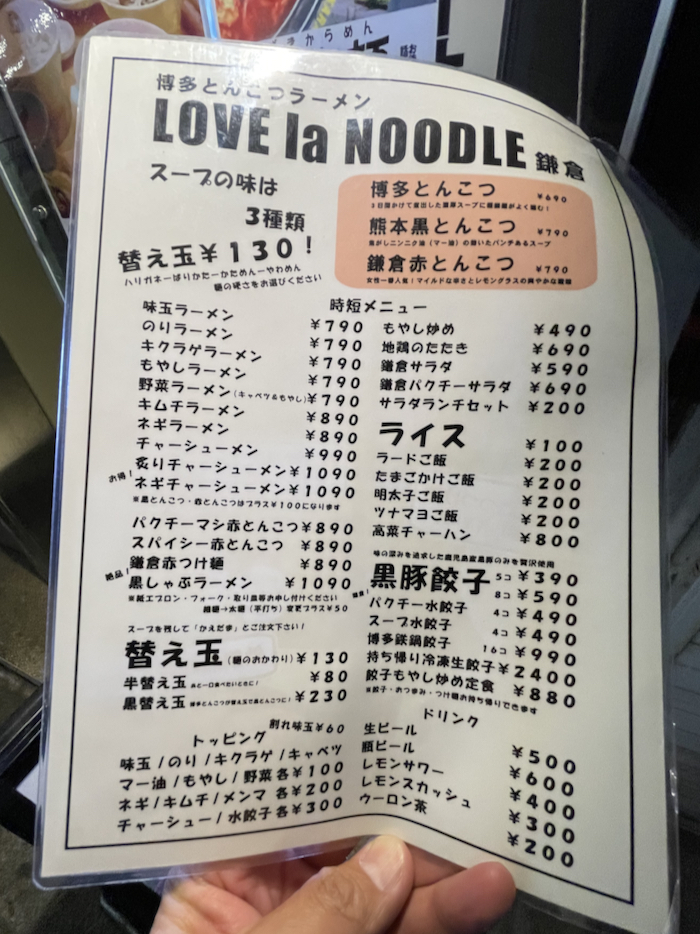 からめん
博多とんこつラーメン
LOVE la NOODLE 鎌倉
スープの味は
3種類
替え玉¥130!
ハリガネーばりかたーかためんーやわめん
麺の硬さをお選びください
博多とんこつ ¥690
3日間かけて炊出した濃厚スープに極細麺がよく絡む!
熊本黒とんこつ ¥790
焦がしニンニク油(マー油)の効いたパンチあるスープ
鎌倉赤とんこつ ¥790
女性一番人気!マイルドな辛さとレモングラスの爽やかな酸味
味玉ラーメン ¥790
のりラーメン ¥790
キクラゲラーメン ¥790
もやしラーメン ¥790
野菜ラーメン(キャベツ&もやし)¥790
キムチラーメン ¥890
ネギラーメン ¥890
チャーシューメン ¥990
炙りチャーシューメン¥1090
お得!
ネギチャーシューメン¥1090
※黒とんこつ・赤とんこつはプラス¥100になります
パクチーマシ赤とんこつ¥890
スパイシー赤とんこつ ¥890
鎌倉赤つけ麺 ¥890
絶品!
黒しゃぶラーメン ¥1090
※紙エプロン・フォーク・取り皿等お申し付けください
細麺→太麺(平打ち)変更プラス¥50
スープを残して「かえだま」とご注文下さい!
替え玉(麺のおかわり)¥130
半替え玉 あと一口食べたいときに! ¥80
黒替え玉 博多とんこつが替え玉で黒とんこつに! ¥230
割れ味玉¥60
トッピング
味玉/のり/キクラゲ/キャベツ
マー油/もやし/野菜 各¥100
ネギ/キムチ/メンマ 各¥200
チャーシュー/水餃子 各¥300
時短メニュー
もやし炒め ¥490
地鶏のたたき ¥690
鎌倉サラダ ¥590
鎌倉パクチーサラダ ¥690
サラダランチセット ¥200
ライス ¥100
ラードご飯 ¥200
たまごかけご飯 ¥200
明太子ご飯 ¥200
ツナマヨご飯 ¥200
高菜チャーハン ¥800
味の深みを追求した鹿児島産黒豚のみを贅沢使用
黒豚餃子 5コ ¥390
8コ ¥590
パクチー水餃子 4コ ¥490
スープ水餃子 4コ ¥490
博多鉄鍋餃子 16コ ¥990
持ち帰り冷凍生餃子 ¥2400
餃子もやし炒め定食 ¥880
※餃子・おつまみ・つけ麺お持ち帰りできます
ドリンク
生ビール ¥500
瓶ビール ¥600
レモンサワー ¥400
レモンスカッシュ ¥300
ウーロン茶 ¥200